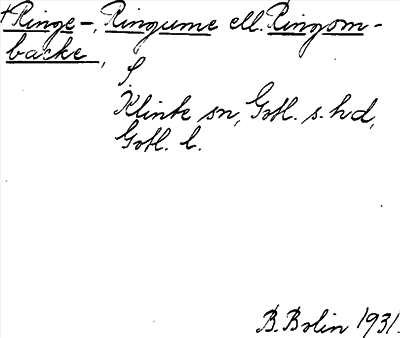 +Ringe-, Ringume ell. Ringom-
backe,
f.
Klinte sn, Gotl. s. hd,
Gotl. l.
B. Bolin 1931.